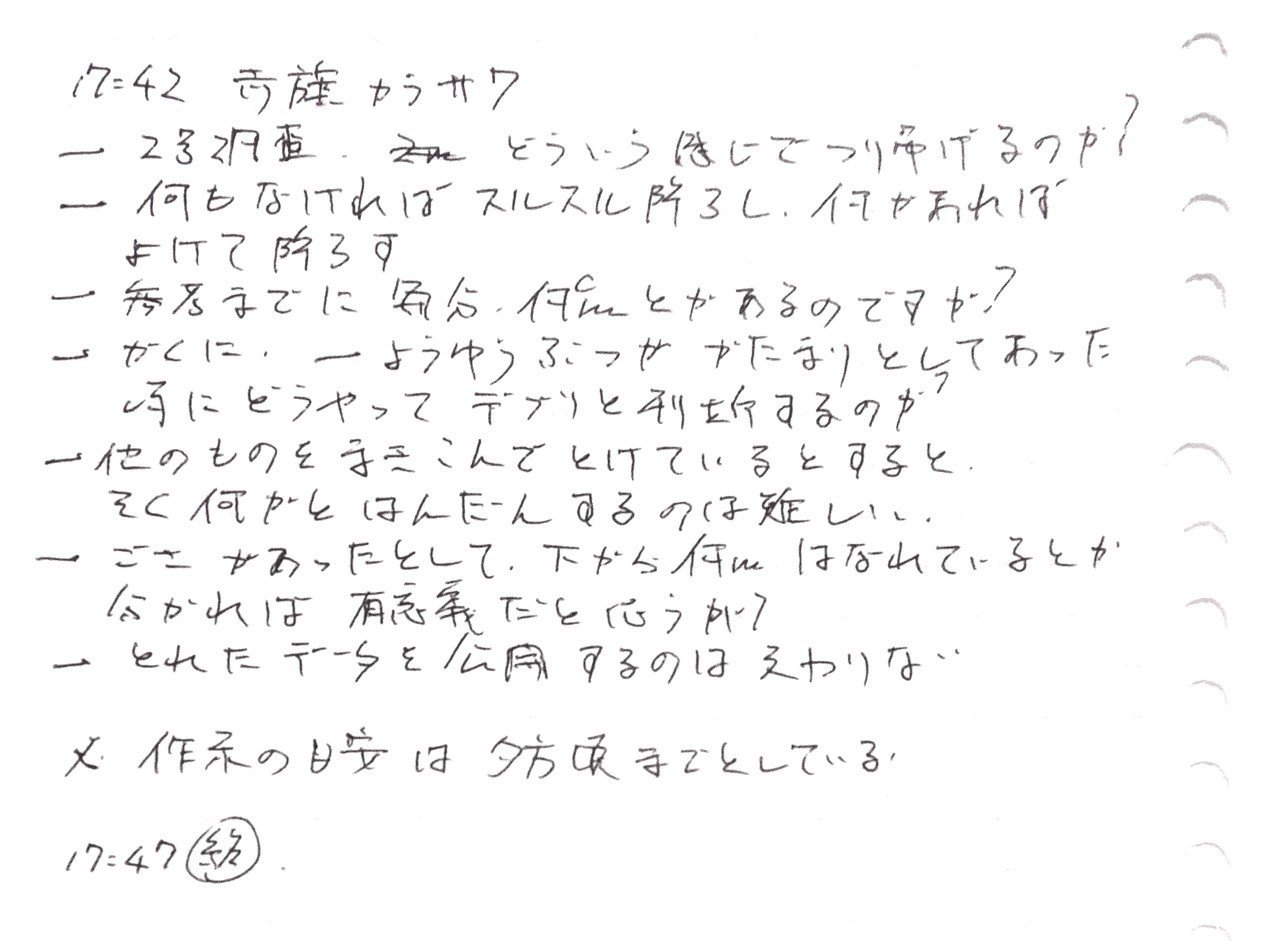 17:42 赤旗 カラサワ
ー 2号調査. どういう感じでつり下げるのか?
ー 何もなければスルスル降ろし、何かあれば
よけて降ろす
ー 参考までに 何cmとかあるのですか?
ー かくに. ーようゆうぶつがかたまりとしてあった
時にどうやってデブリと判断するのか?
ー他のものをまきこんでとけているとすると、
そく何かとはんだんするのは難しい.
ー ここがあったとして、下から何m はなれているとか
分かれば有意義だと思うが?
ー とれたデータを公開するのはまわりない
※ 作業の目安は夕方頃までとしている.
17:47 終.